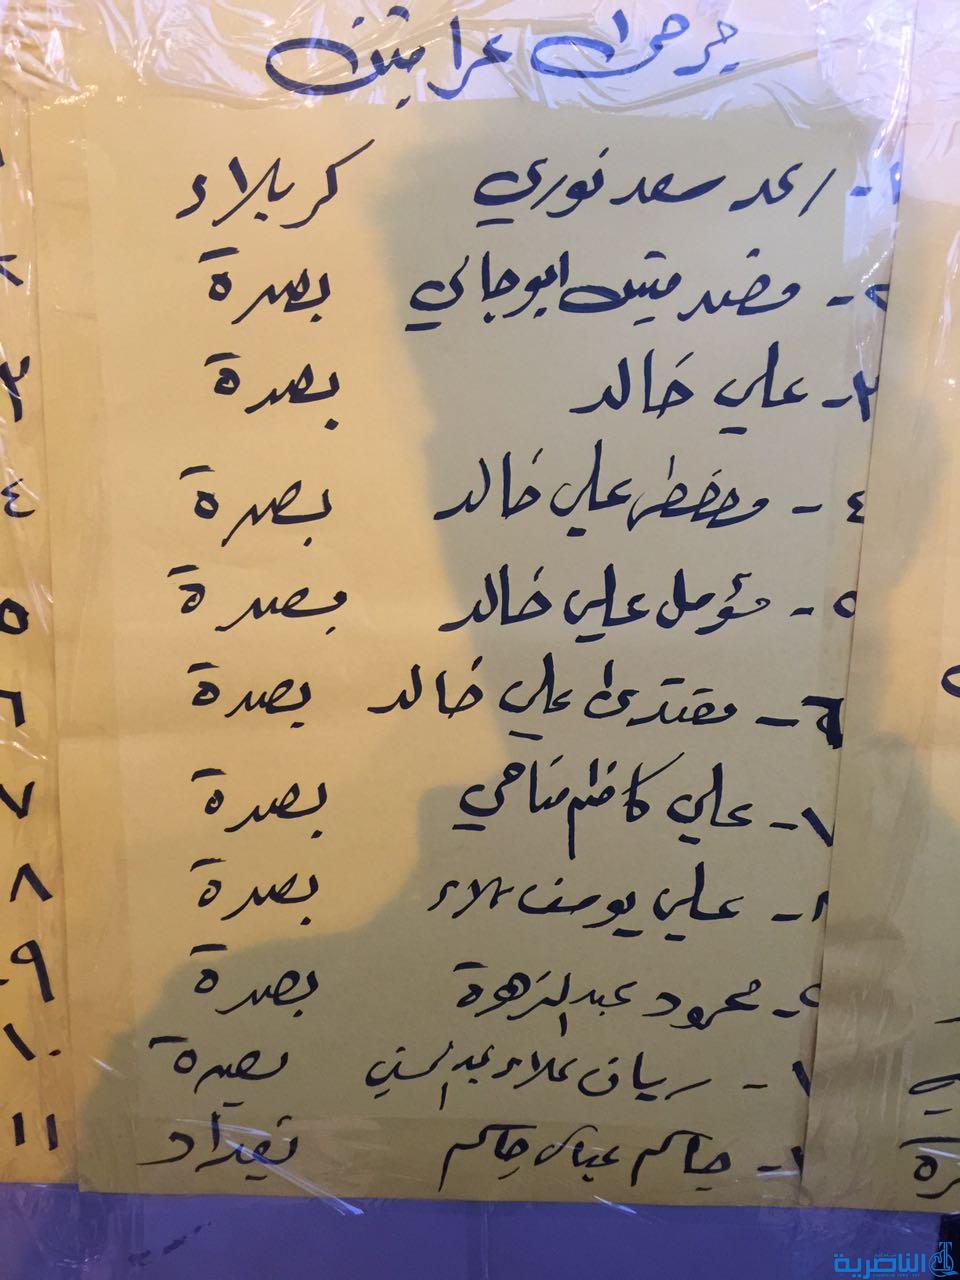 جرحى عراقيين
١- رعد سعد نوري كربلاء
٢- مهند ابو جالي بصرة
٣- علي خالد بصرة
٤- علي خالد بصرة
٥- مؤمل علي خالد بصرة
٦- مقتدى علي خالد بصرة
٧- علي كاظم مناحي بصرة
٨- علي يوسف علاء بصرة
محمود عبد الزهرة بصرة
ريان علاء عبد الحسين بصرة
جاسم عباس جاسم بغداد
٣
٤
٥
٦
٧
٨
٩
١٠
١١
الناصرية